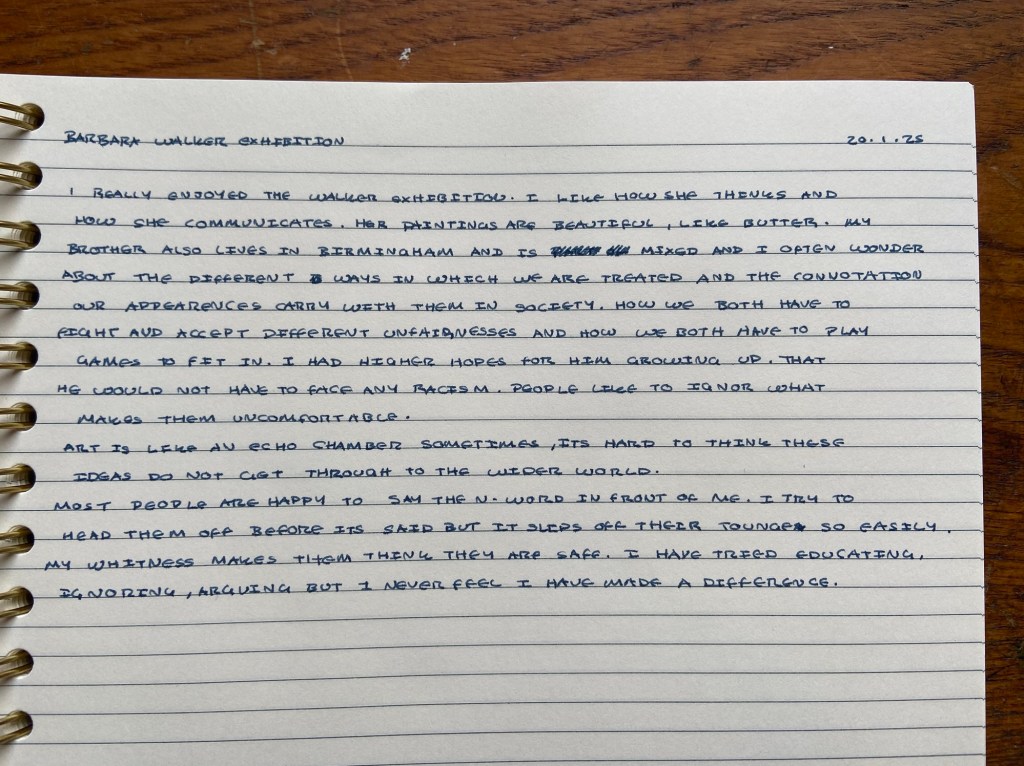 BARBARA WALKER EXHIBITION 20.1.25
I REALLY ENJOYED THE WALKER EXHIBITION. I LIKE HOW SHE THINKS AND
HOW SHE COMMUNICATES. HER PAINTINGS ARE BEAUTIFUL, LIKE BUTTER. MY
BROTHER ALSO LIVES IN BIRMINGHAM AND IS MIXED AND I OFTEN WONDER
ABOUT THE DIFFERENT WAYS IN WHICH WE ARE TREATED AND THE CONNOTATION
OUR APPEARENCES CARRY WITH THEM IN SOCIETY. HOW WE BOTH HAVE TO
FIGHT AND ACCEPT DIFFERENT UNFAIRNESSES AND HOW WE BOTH HAVE TO PLAY
GAMES TO FIT IN. I HAD HIGHER HOPES FOR HIM GROWING UP. THAT
HE WOULD NOT HAVE TO FACE ANY RACISM. PEOPLE LIKE TO IGNOR WHAT
MAKES THEM UNCOMFORTABLE.
ART IS LIKE AN ECHO CHAMBER SOMETIMES, ITS HARD TO THINK THESE
IDEAS DO NOT GET THROUGH TO THE WIDER WORLD.
MOST PEOPLE ARE HAPPY TO SAY THE N-WORD IN FRONT OF ME. I TRY TO
HEAD THEM OFF BEFORE ITS SAID BUT IT SLIPS OFF THEIR TOUNGE SO EASILY.
MY WHITNESS MAKES THEM THINK THEY ARE SAFE. I HAVE TRIED EDUCATING,
IGNORING, ARGUING BUT I NEVER FEEL I HAVE MADE A DIFFERENCE.